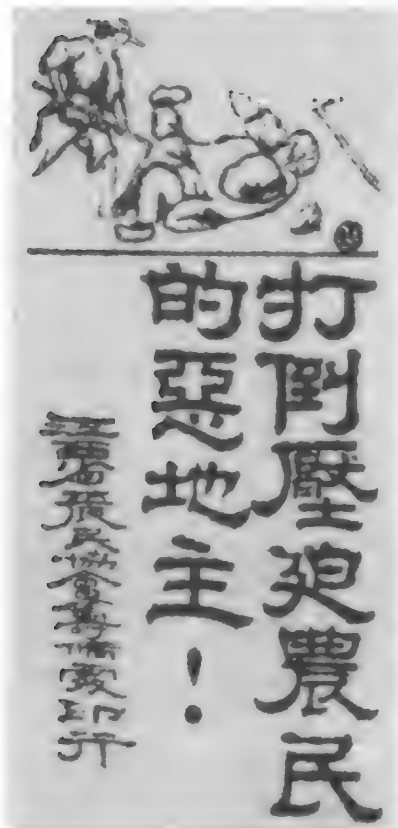 打倒壓迫農民
的惡地主！
江西省農民協會籌備處印行